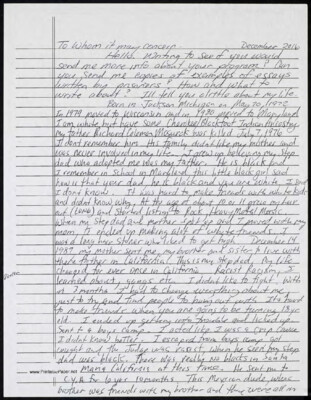 To Whom it may concern December 2016
Hello. Writing to see if you would
send me more info about your program? Can
you send me copies of examples of essays
written by prisoners? How and what to
write about? I'll tell you a little about my life.
Born in Jackson Michigan on May 10, 1976
In 1979 moved to Wisconsin and in 1980 moved to Maryland.
I am white but have some Cherokee/Blackfoot Indian Ancestry.
my father Richard was killed July 7, 1976
I don't remember him. His family didn't like my mother and
was never involved in my life. I grew up believing my step
dad who adopted me was my father. He is black and
I remember in school in Maryland this little black girl said
how is that your dad he is black and you are white. I said
I don't know. It was hard to make friends with white kids
and didn't know why. At the age of about 10 or 11 grew my hair
out (long) and started listening to Rock/Heavy Metal Music.
When my stepdad and mother split up and I moved with my
mom, I ended up making alot of white friends. I
was a long hair stoner who liked to get high. December 19
1987, my mother sent me, my brother and sister to live with
their father in California. This is my stepdad. My life
changed for ever once in California. Racist Racism, I
learned about gangs etc. I didn't like to fight. With
in 7 months I had to change everything about me
just to try and find people to hang out with. It's hard
to make friends when you are going to be turning 12 yrs
old. I ended up getting into trouble and locked up.
Sent to a boys camp. I acted like I was a crip cause
I didn't know better. I escaped from boys camp got
caught and the Judge was racist, when he seen my step
dad was black. There was really no blacks in Santa
Maria California at this time. He sent me to
C.Y.A for 1 year 10 months. This Mexican dude whose
brother was friends with my brother and they were all in
www.PrintablePaper.net